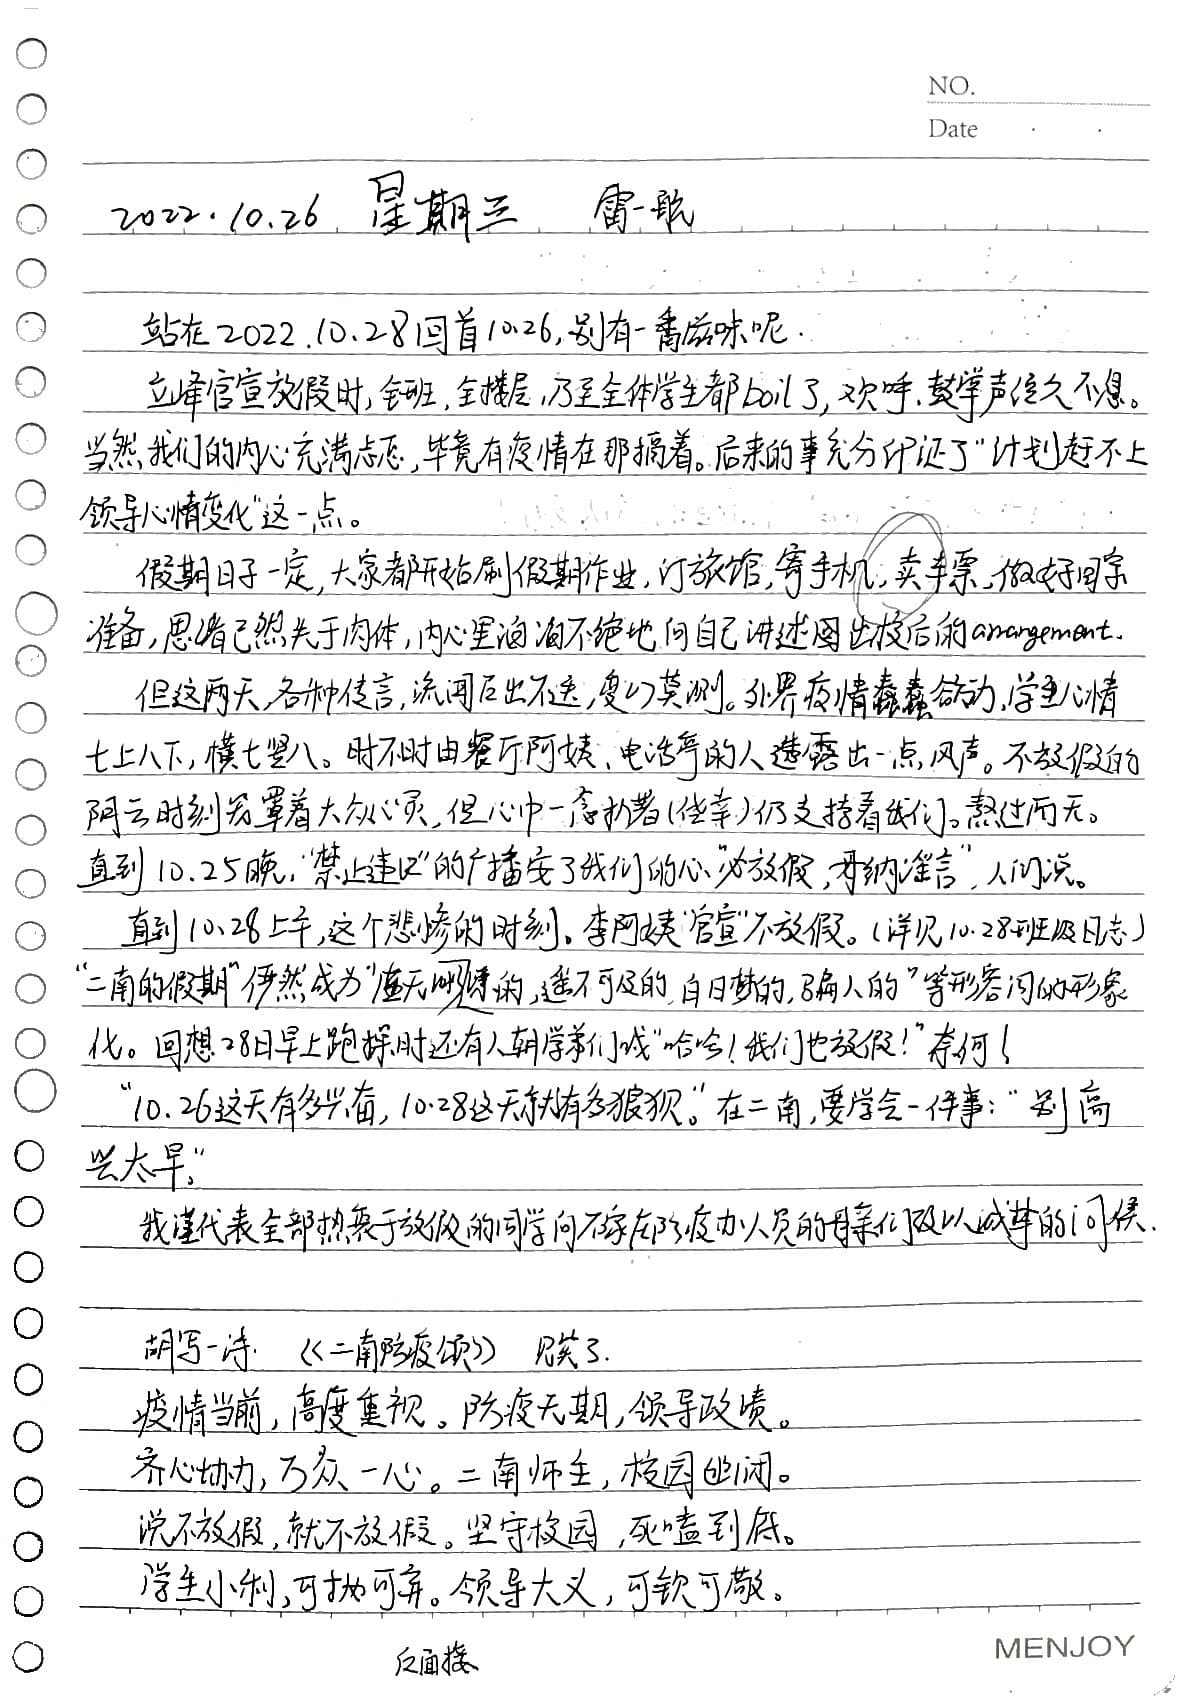 NO.
Date
2022.10.26 星期三 雷一航
站在2022.10.28回首10.26,别有一番滋味呢.
立峰官宣放假时,全班,全楼层,乃至全体学生都boil了,欢呼.鼓掌声经久不息。
当然,我们的内心充满忐忑,毕竟有疫情在那搞着。后来的事充分印证了“计划赶不上
领导心情变化”这一点。
假期日子一定,大家都开始刷假期作业,订旅馆,寄手机,卖车票,做好回家
准备,思绪已然先于肉体,内心里滔滔不绝地向自己讲述圈出校后的arrangement.
但这两天,各种传言,流闻层出不迭,变幻莫测。外界疫情蠢蠢欲动,学生心情
七上八下,横七竖八。时不时由餐厅阿姨、电话亭的人透露出一点风声。不放假的
阴云时刻笼罩着大众心灵,但心中一念执著(侥幸)仍支撑着我们。熬过两天。
直到10.25晚,“禁止违纪”的广播安了我们的心“必放假,毋纳谣言”,人们说。
直到10.28上午,这个悲惨的时刻。李阿姨“官宣”不放假。(详见10.28班级日志)
“二南的假期”俨然成为“虚无的,遥不可及的,白日梦的,骗人的”等形容词的形象
化。回想28日早上跑操时还有人朝学弟们喊“哈哈!我们也放假!”奈何!
“10.26这天有多兴奋,10.28这天就有多狼狈。”在二南,要学会一件事:“别高
兴太早。”
我谨代表全部热衷于放假的同学向不家在防疫办人员的母亲们致以诚挚的问候.
胡写一诗. 《二南防疫颂》 见笑了.
疫情当前,高度重视。防疫无期,领导政绩。
齐心协力,万众一心。二南师生,校园幽闭。
说不放假,就不放假。坚守校园,死嗑到底。
学生小利,可抛可弃。领导大义,可钦可敬。
反面接
MENJOY